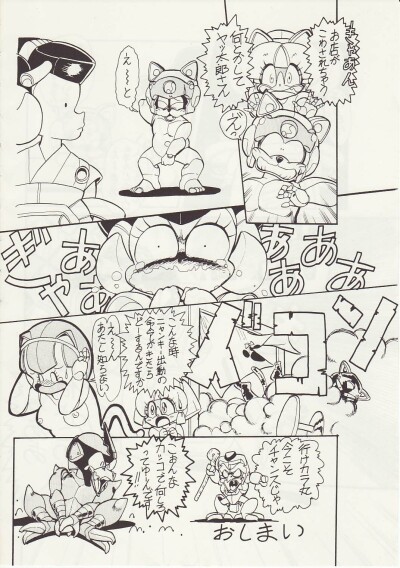 きゃあん、
お店が
こわされちゃう
何とかして
ヤッ太郎さん
え〜と
えん
ぎゃあああああああ
ズゴン
こんな時
ニャンキー出動の
命令がきたら
ど〜するんですか
え〜ん
あたし知らない
こぉんな
カッコで何しろ
ってゆーんです!!
行けカラ丸
今こそ
チャンスじゃ
おしまい